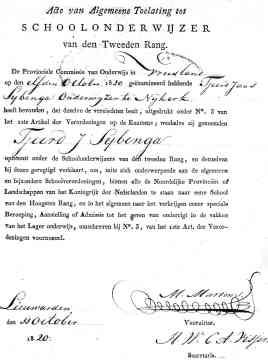 Acte van Algemeene Toelating tot
SCHOOLONDERWIJZER
van den Tweeden Rang.
De Provinciale Commissie van Onderwijs in Vriesland
op den elfden October 1820 geëxamineerd hebbende Tjeerd Jans
Sijbenga Onderwijzer te Nijkerk
heeft bevonden, dat dezelve de vereischten bezit, uitgedrukt onder N°. 3 van
het 12te Artikel der Verordeningen op de Examens; weshalve zij gemelden
Tjeerd J Sijbenga
opneemt onder de Schoolonderwijzers van den tweeden Rang, en denzelven
bij dezen geregtigd verklaart, om, mits zich onderwerpende aan de algemeene
en bijzondere Schoolverordeningen, binnen alle de Noordelijke Provinciën of
Landschappen van het Koningrijk der Nederlanden te staan naar eene School
van den Hoogsten Rang, en in het algemeen naar het verkrijgen eener speciale
Beroeping, Aanstelling of Admissie tot het geven van onderwijs in de vakken
van het Lager onderwijs, omschreven bij N°. 3, van het 12te Art. der Veror-
deningen voornoemd.
Leeuwarden
den 11 October
1820.
Voorzitter.
Secretaris.